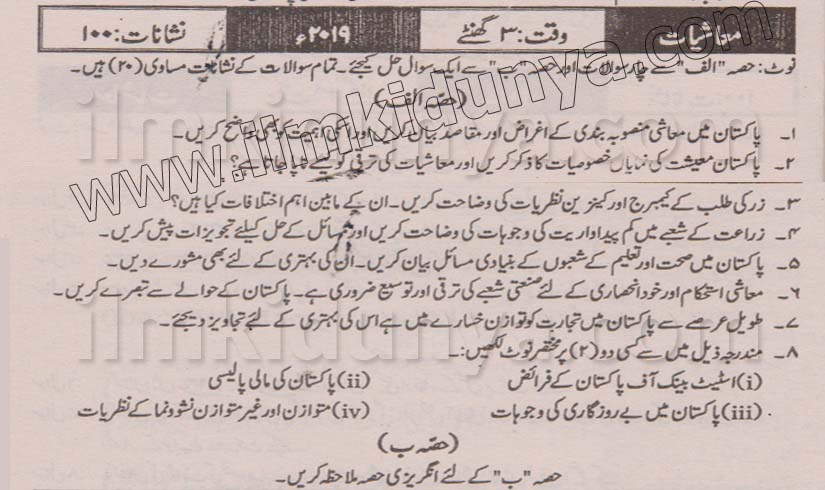 معاشیات وقت: ۳ گھنٹے ۲۰۱۹ء نشانات: ۱۰۰
نوٹ: حصہ "الف" سے چار سوالات اور حصہ "ب" سے ایک سوال حل کیجئے۔ تمام سوالات کے نشانات مساوی (۲۰) ہیں۔
(حصہ الف)
۱۔ پاکستان میں معاشی منصوبہ بندی کے اغراض اور مقاصد بیان کریں اور اس کی اہمیت کو بھی واضح کریں۔
۲۔ پاکستان معیشت کی نمایاں خصوصیات کا ذکر کریں اور معاشیات کی ترقی کو کیسے ناپا جاتا ہے؟
۳۔ زر کی طلب کے کیمبرج اور کینزین نظریات کی وضاحت کریں۔ ان کے مابین اہم اختلافات کیا ہیں؟
۴۔ زراعت کے شعبے میں کم پیداواریت کی وجوہات کی وضاحت کریں اور مسائل کے حل کیلئے تجویزات پیش کریں۔
۵۔ پاکستان میں صحت اور تعلیم کے شعبوں کے بنیادی مسائل بیان کریں۔ ان کی بہتری کے لئے بھی مشورے دیں۔
۶۔ معاشی استحکام اور خود انحصاری کے لئے صنعتی شعبے کی ترقی اور توسیع ضروری ہے۔ پاکستان کے حوالے سے تبصرے کریں۔
۷۔ طویل عرصے سے پاکستان میں تجارت کو توازن خسارے میں ہے اس کی بہتری کے لئے تجاویز دیجئے۔
۸۔ مندرجہ ذیل میں سے کسی دو (۲) پر مختصر نوٹ لکھیں:۔
(i) اسٹیٹ بینک آف پاکستان کے فرائض (ii) پاکستان کی مالی پالیسی
(iii) پاکستان میں بے روزگاری کی وجوہات (iv) متوازن اور غیر متوازن نشوونما کے نظریات
(حصہ ب)
حصہ "ب" کے لئے انگریزی حصہ ملاحظہ کریں۔
www.ilmkidunya.com
ilmkidunya.com
ilmkidunya.com